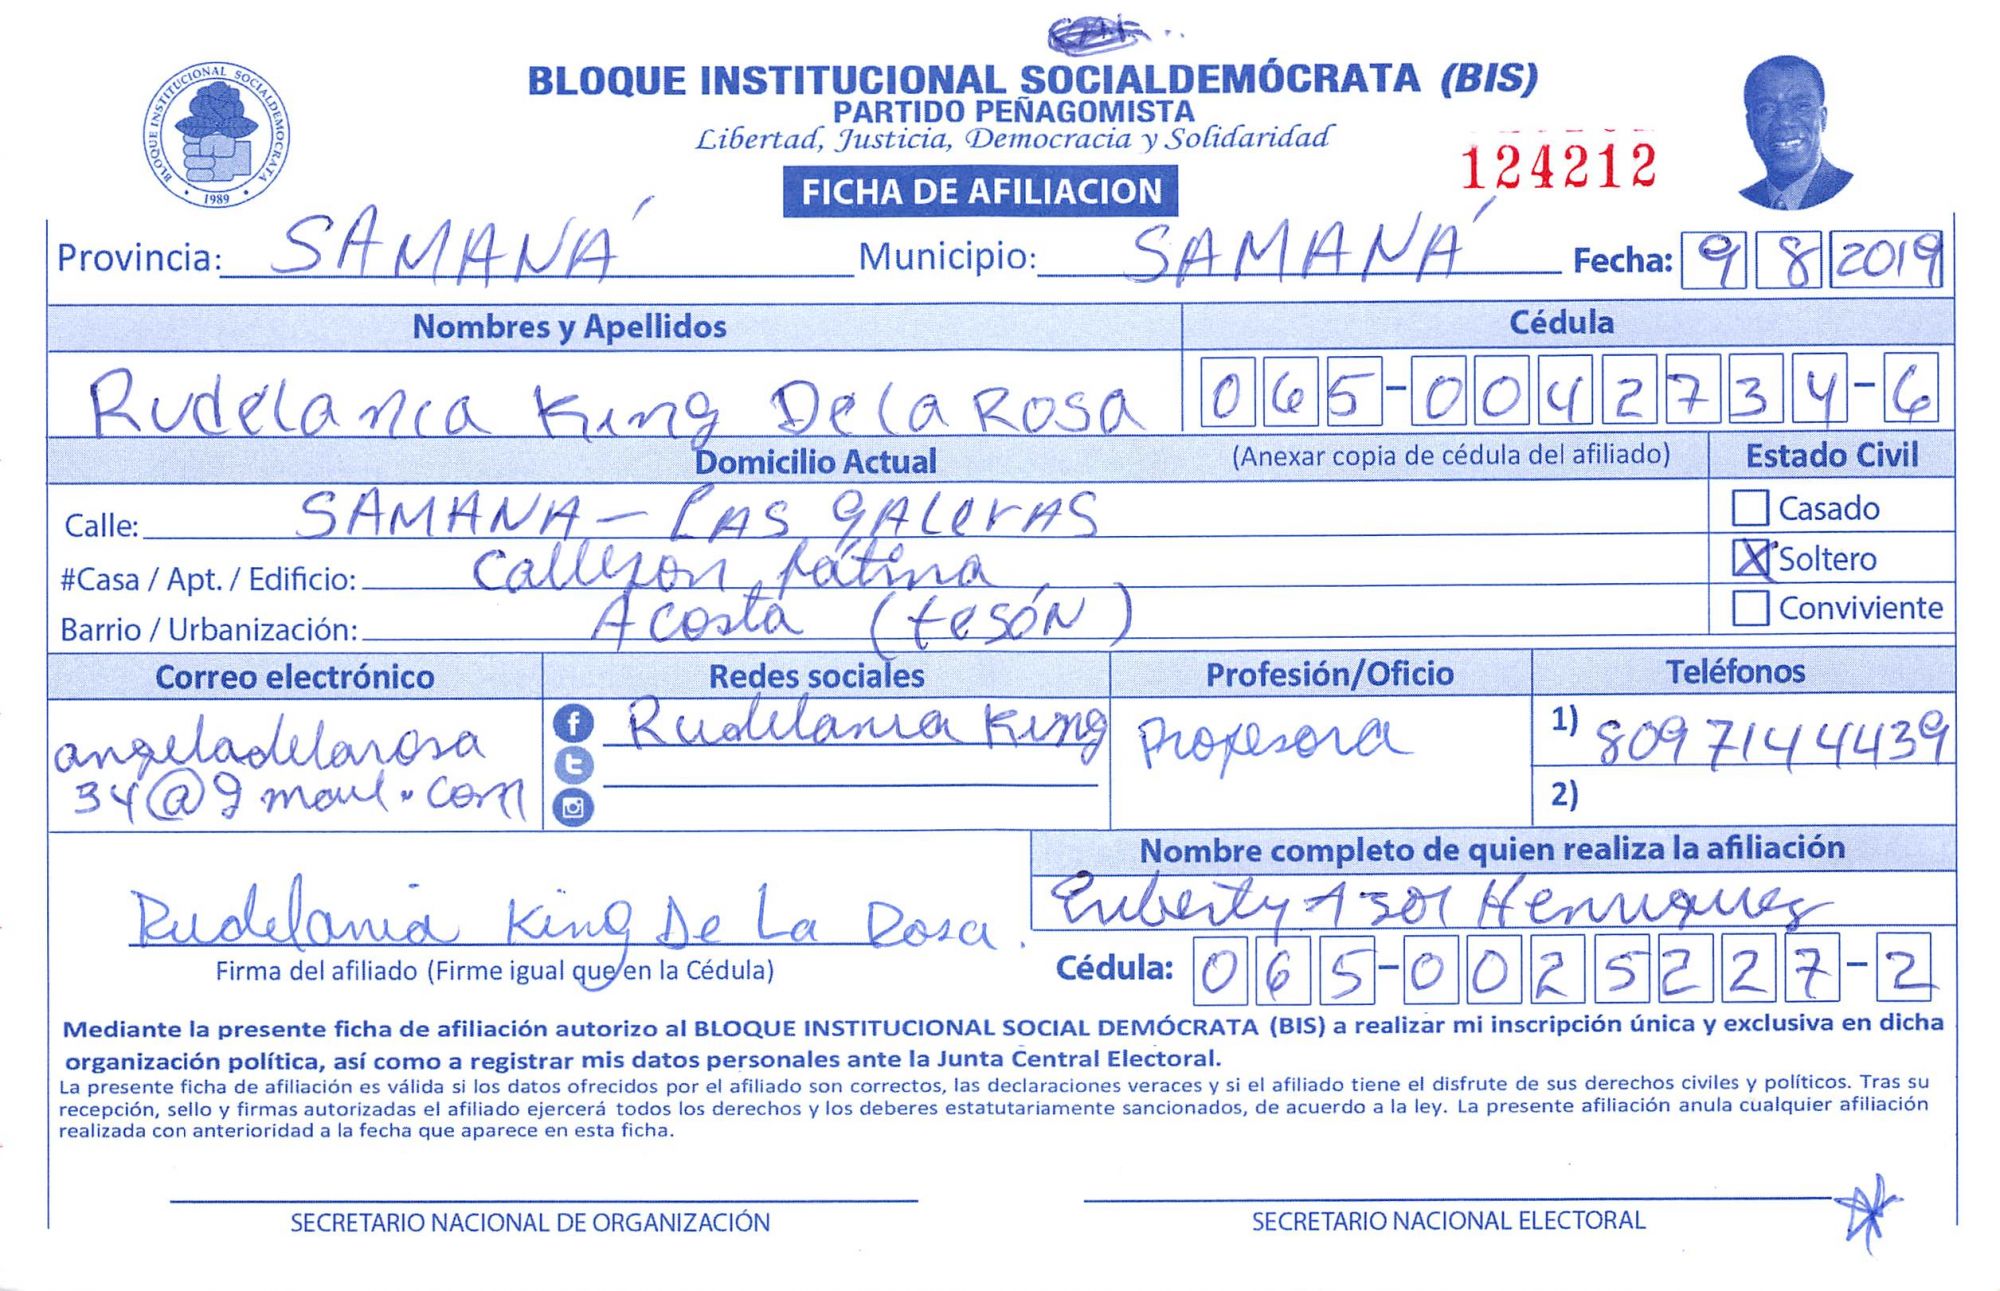 BLOQUE INSTITUCIONAL SOCIALDEMÓCRATA (BIS)
PARTIDO PEÑAGOMISTA
Libertad, Justicia, Democracia y Solidaridad
BLOQUE INSTITUCIONAL SOCIALDEMOCRATA
1989
124212
FICHA DE AFILIACION
Provincia: SAMANÁ Municipio: SAMANÁ Fecha: 9 8 2019
Nombres y Apellidos Cédula
Rudelania King De la Rosa 065-0042734-6
Domicilio Actual (Anexar copia de cédula del afiliado) Estado Civil
Calle: SAMANA - LAS gALerAS Casado
#Casa / Apt. / Edificio: Callejon fátima Soltero
Barrio / Urbanización: Acosta (tesón) Conviviente
Correo electrónico Redes sociales Profesión/Oficio Teléfonos
angeladelarosa Rudelania King Profesora 1) 8097144439
34@gmail.com 2)
Nombre completo de quien realiza la afiliación
Euberty Henriquez
Rudelania King De La Rosa.
Firma del afiliado (Firme igual que en la Cédula) Cédula: 065-0025227-2
Mediante la presente ficha de afiliación autorizo al BLOQUE INSTITUCIONAL SOCIAL DEMÓCRATA (BIS) a realizar mi inscripción única y exclusiva en dicha
organización política, así como a registrar mis datos personales ante la Junta Central Electoral.
La presente ficha de afiliación es válida si los datos ofrecidos por el afiliado son correctos, las declaraciones veraces y si el afiliado tiene el disfrute de sus derechos civiles y políticos. Tras su
recepción, sello y firmas autorizadas el afiliado ejercerá todos los derechos y los deberes estatutariamente sancionados, de acuerdo a la ley. La presente afiliación anula cualquier afiliación
realizada con anterioridad a la fecha que aparece en esta ficha.
SECRETARIO NACIONAL DE ORGANIZACIÓN SECRETARIO NACIONAL ELECTORAL